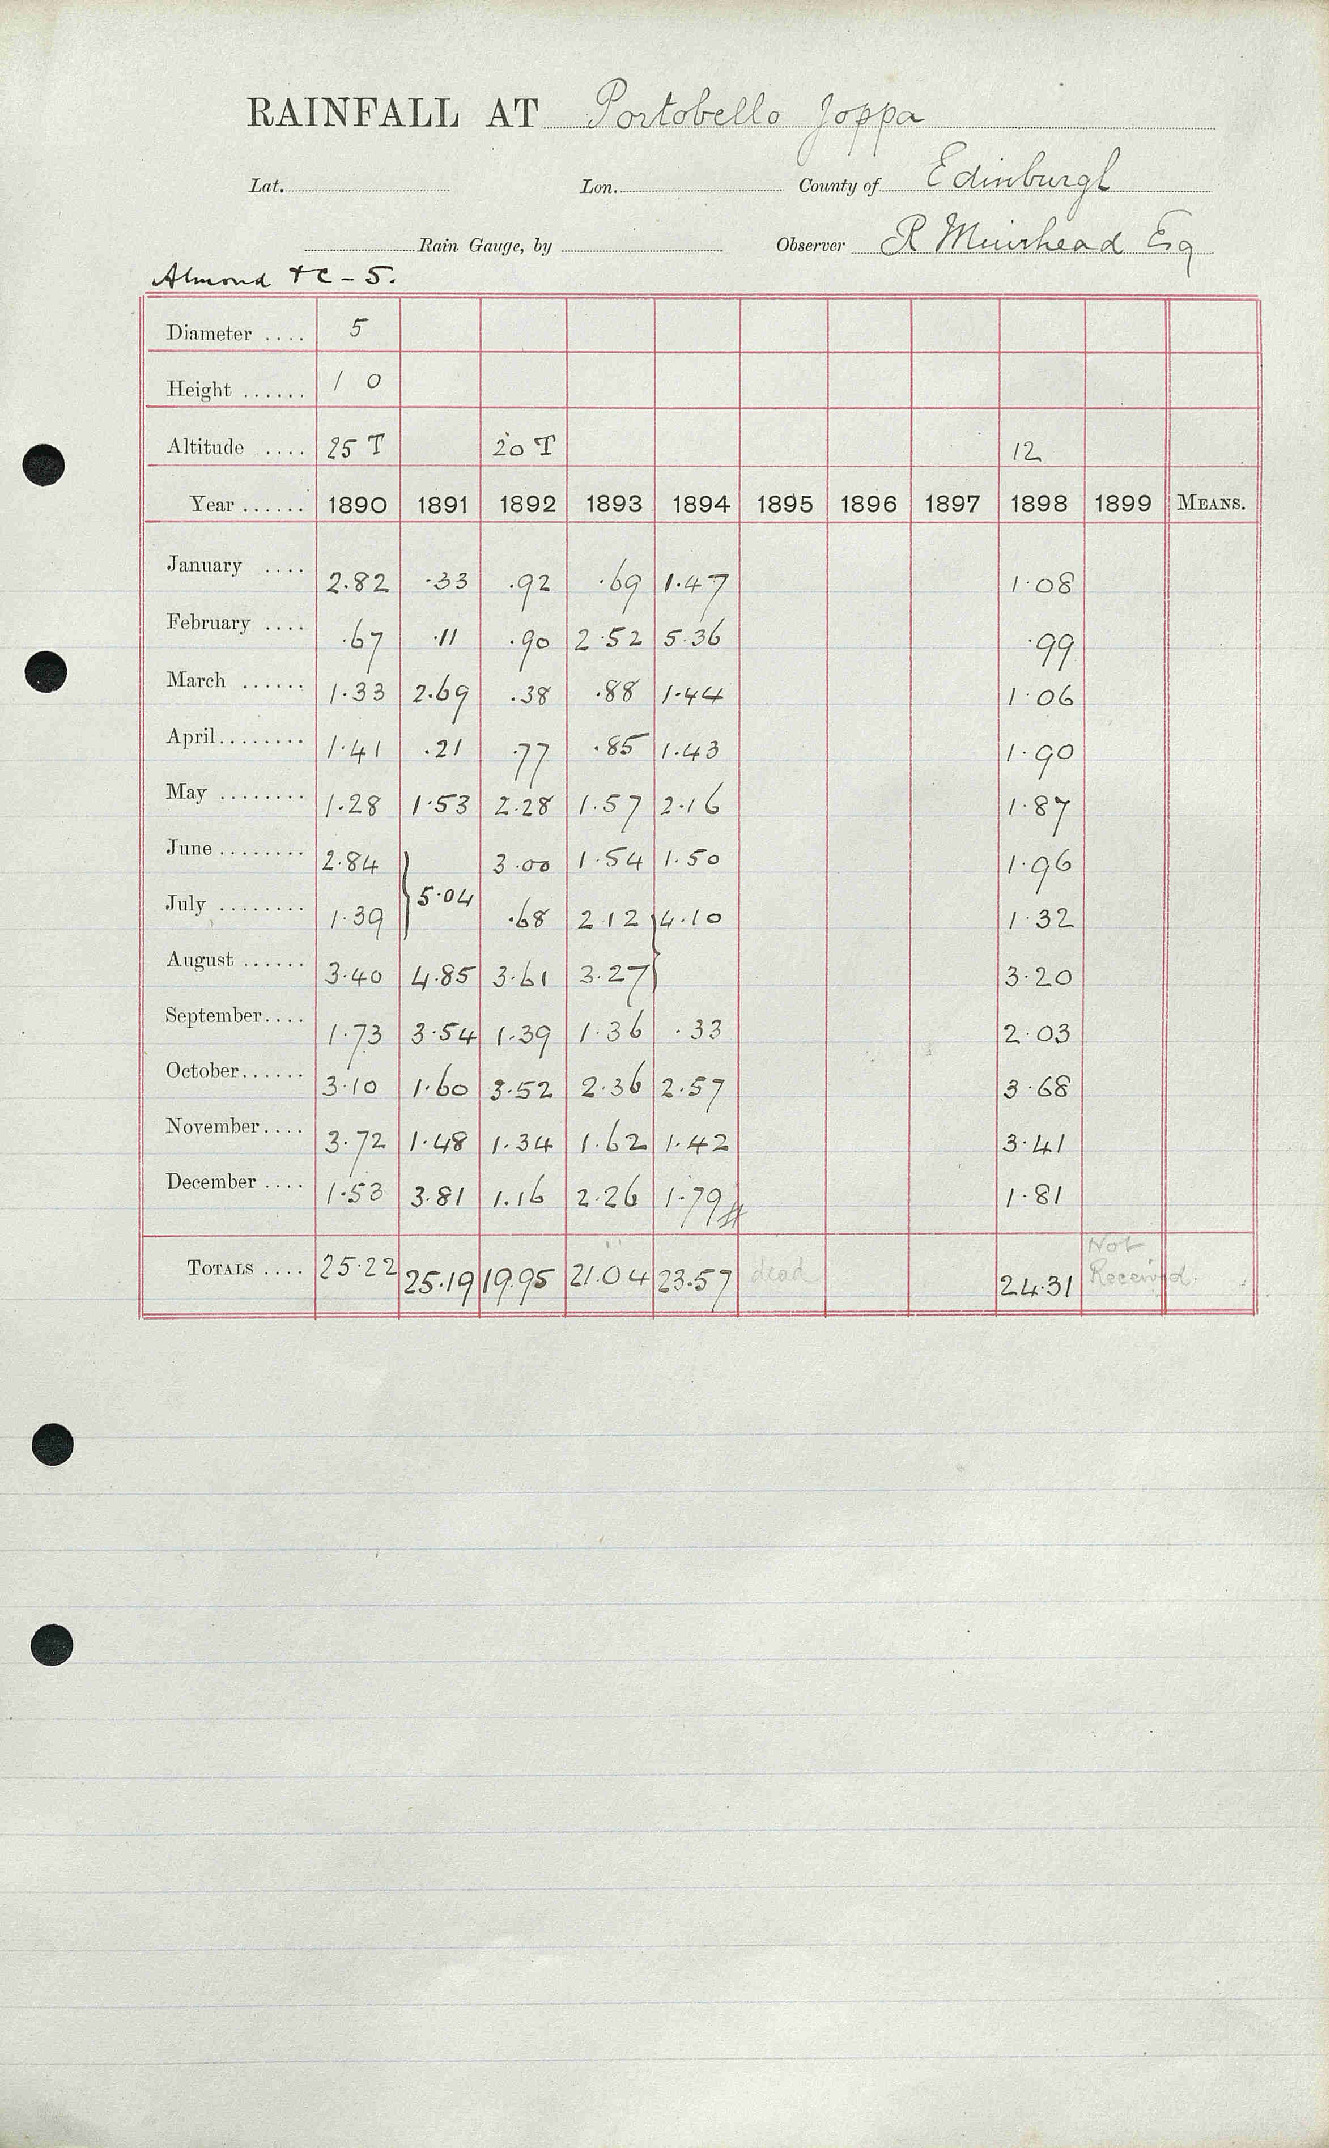 RAINFALL AT Portobello Joppa
Lat. Lon. County of Edinburgh
Rain Gauge, by Observer R Muirhead Esq
Almond &c - 5.
Diameter .... 5
Height ...... 1 0
Altitude .... 25 T 20 T 12
Year ...... 1890 1891 1892 1893 1894 1895 1896 1897 1898 1899 MEANS.
January .... 2.82 .33 .92 .69 1.47 1.08
February .... .67 .11 .90 2.52 5.36 .99
March ...... 1.33 2.69 .38 .88 1.44 1.06
April........ 1.41 .21 .77 .85 1.43 1.90
May ........ 1.28 1.53 2.28 1.57 2.16 1.87
June ........ 2.84 3.00 1.54 1.50 1.96
July ........ 1.39 5.04 .68 2.12 4.10 1.32
August ...... 3.40 4.85 3.61 3.27 3.20
September.... 1.73 3.54 1.39 1.36 .33 2.03
October...... 3.10 1.60 3.52 2.36 2.57 3.68
November.... 3.72 1.48 1.34 1.62 1.42 3.41
December .... 1.53 3.81 1.16 2.26 1.79 1.81
TOTALS .... 25.22 25.19 19.95 21.04 23.57 dead 24.31 Not Received